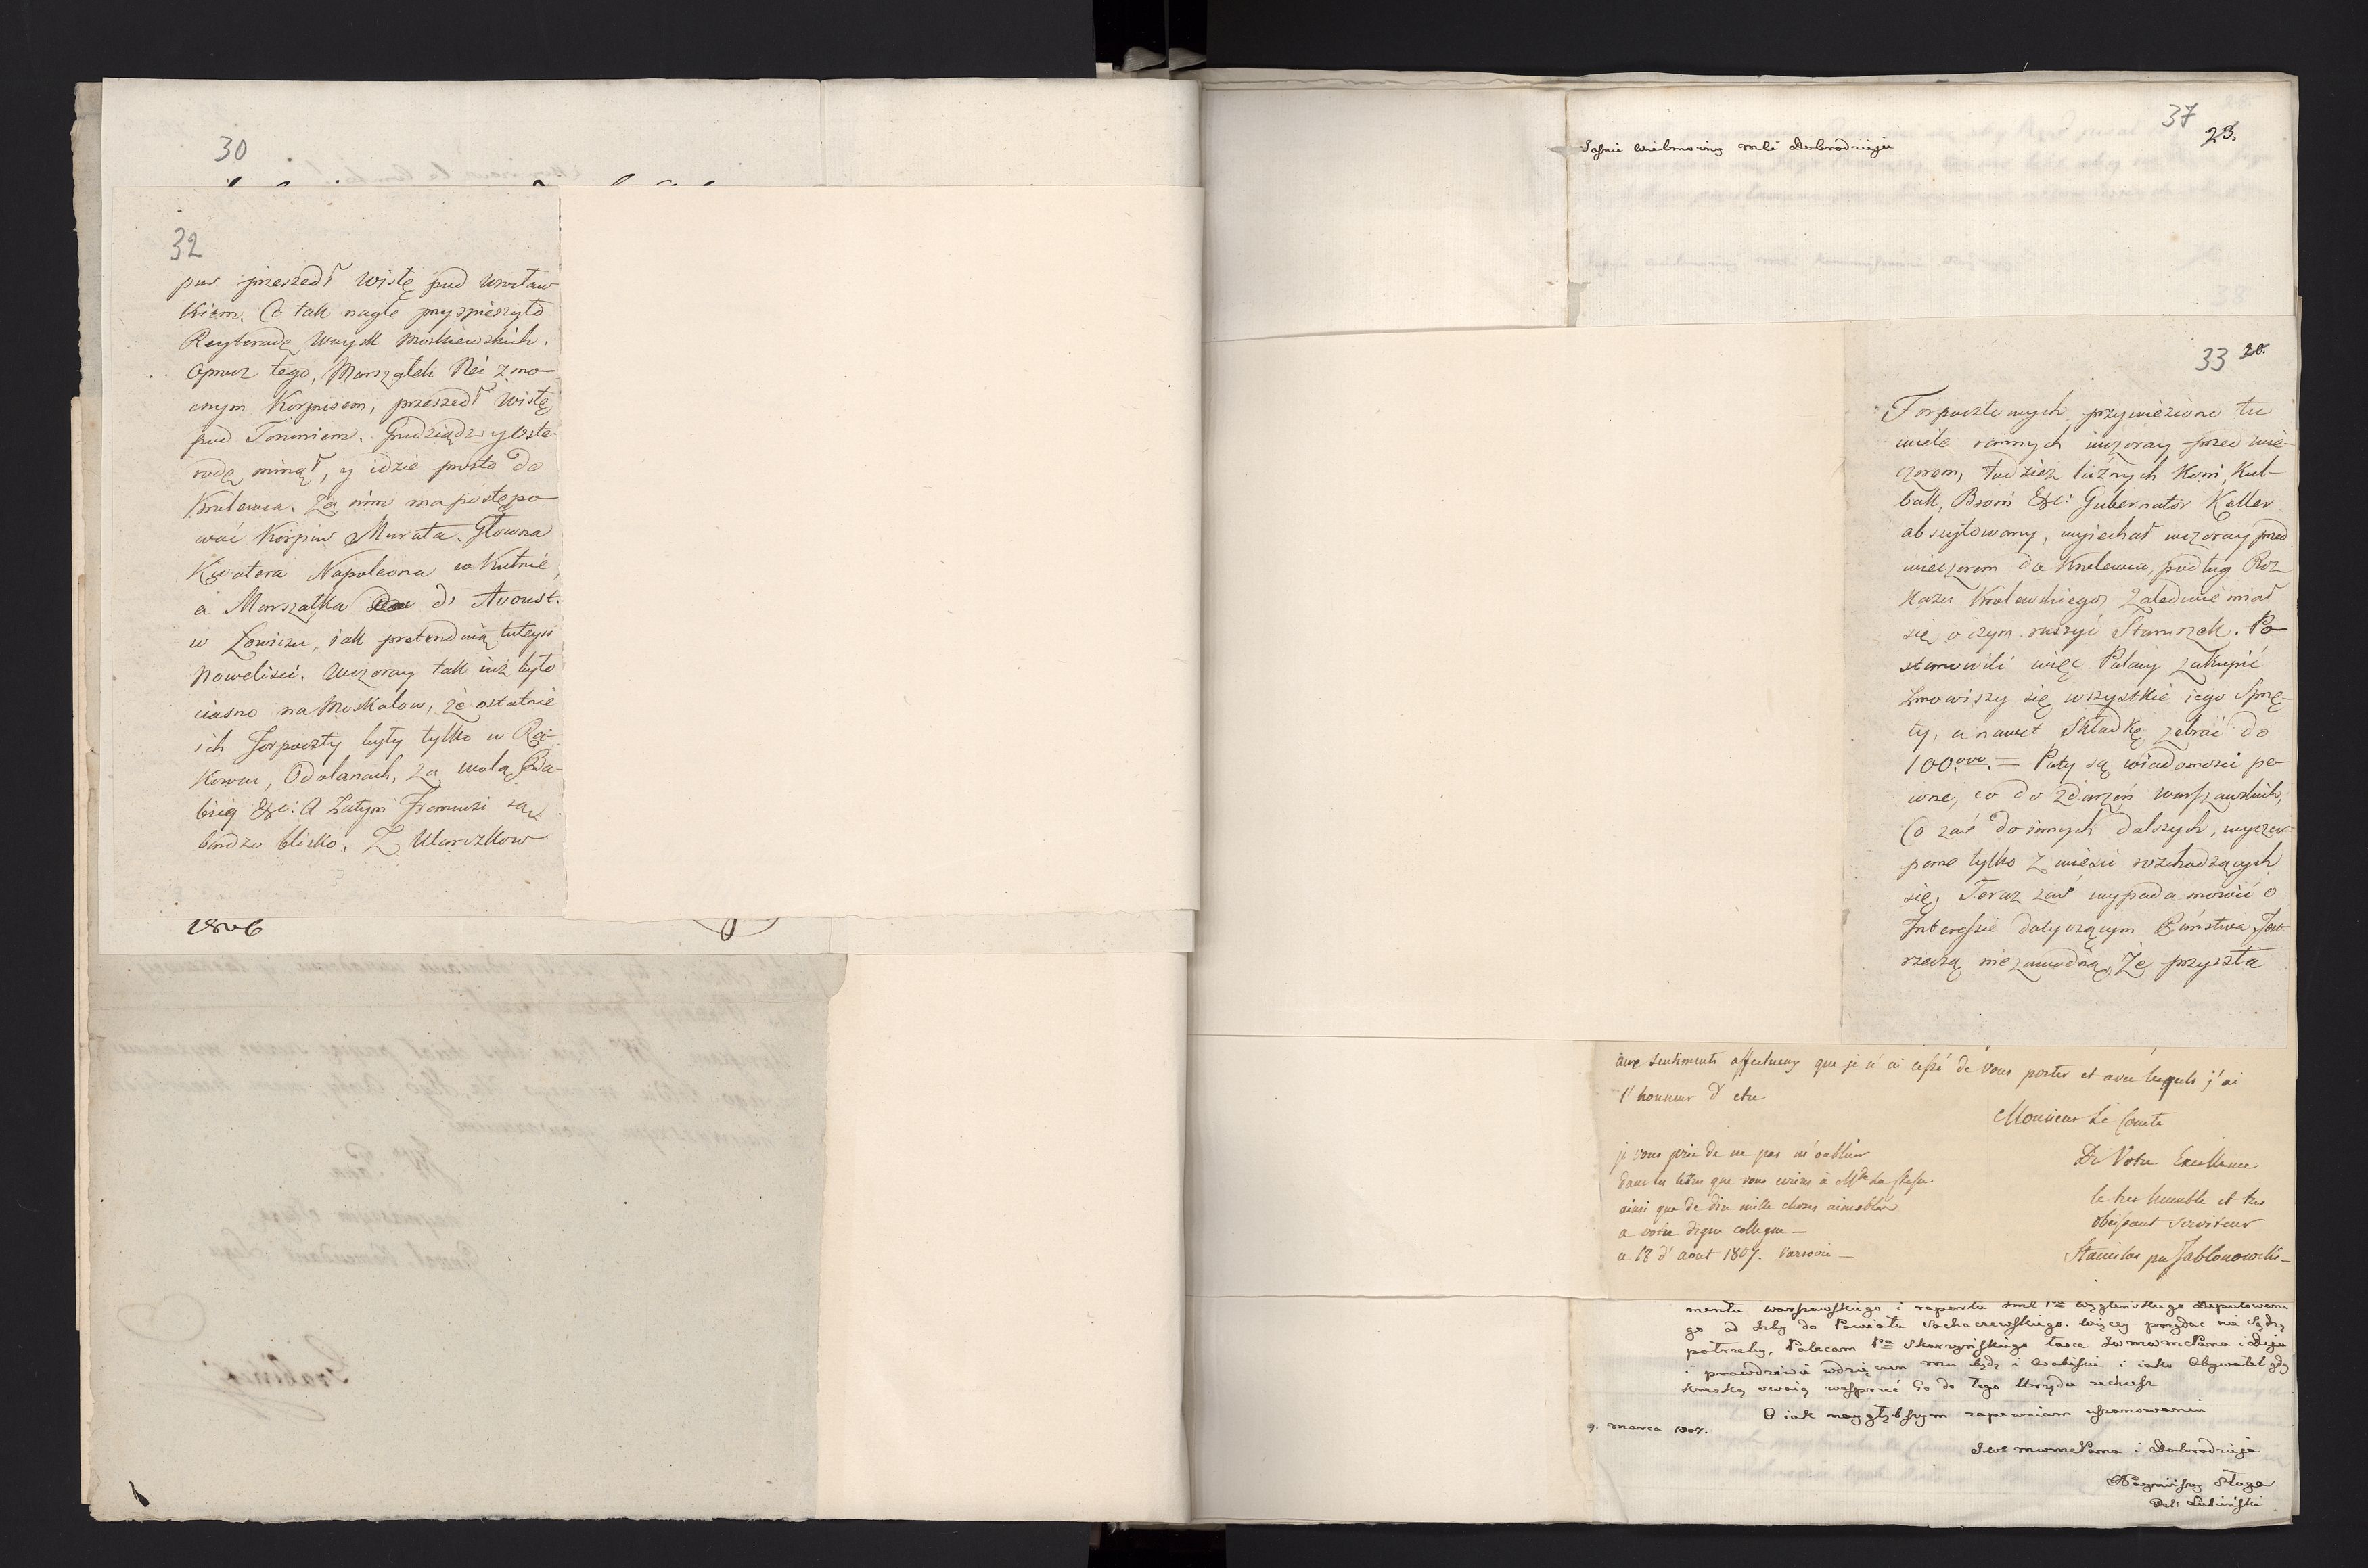 30
32
pus przeszedł Wisłę pod Wrocław
kiem. Co tak nagle przyspieszyło
Reyteradę Woysk Moskiewskich.
Oprocz tego, Marszałek Nei z mo-
cnym Korpusem, przeszedł Wisłę
pod Toruniem. Grudziądz y Oste-
rodę minął, y idzie prosto do
Krulewca. Za nim ma postępo-
wać Korpus Murata. Głowna
Kwatera Napoleona w Kutnie,
a Marszałka d' Avoust.
w Łowiczu, iak pretenduią tuteysi
Noweliści. Wczoray tak iuż było
ciasno na Moskalow, że ostatnie
ich Forpoczty były tylko w Ra-
kowcu, Odolanach, za Wolą, Ba-
bicą &c: A Zatym Francuzi są
bardzo blisko. Z Utarczkow
1806
37
23.
Jaśnie Wielmożny Mci Dobrodzieju
33 20.
Forpocztowych przywieziono tu
wiele rannych wczoray przed wie-
czorem, tudzież luźnych Koni, Kul-
bak, Broni &c: Gubernator Keller
abszytowany, wyiechał wczoray przed
wieczorem do Krulewca, podług Roz
kazu Krolewskiego, Zaledwie miał
się o czym ruszyć Staruszek. Po
stanowili więc Polacy zakupić
zmowiwszy się wszystkie iego Sprzę-
ty, a nawet Składkę zebrać do
100.000. = Poty są wiadomości pe-
wne, co do zdarzeń warszawskich,
Co zaś do innych dalszych, wyczer-
pane tylko z wieści rozchodzących
się. Teraz zaś wypada mowić o
Interessie dotyczącym Państwa. Jest
rzeczą niezawodną, Że przyszła
aux sentiments affectueux que je n'ai cessé de vous porter et avec lesquels j'ai
l'honneur d'etre
Monsieur Le Comte
De Votre Excellence
le tres humble et tres
obeissant Serviteur
Stanislas Jablonowski
je vous prie de ne pas m'oublier
dans les lettres que vous
ainsi que de dire mille choses aimables
a votre digne collegue —
a 18 d'aout 1807. Varsovie —
mentu Warszawskiego i raportu Deputowane
go od Izby do Powiatu Sochaczewskiego. Więcey przydać nie Sądzę
potrzeby, Polecam Pa Skarzyńskiego łasce
i prawdziwie wdzięczen mu będę i Osobiście i iako Obywatel gdy
kreską swoią wesprzeć Go do tego Urzędu zechcesz
O iak naygłębszym zapewniam uszanowaniu
9. Marca 1807.
i Dobrodzieja
Nayniższy Sługa